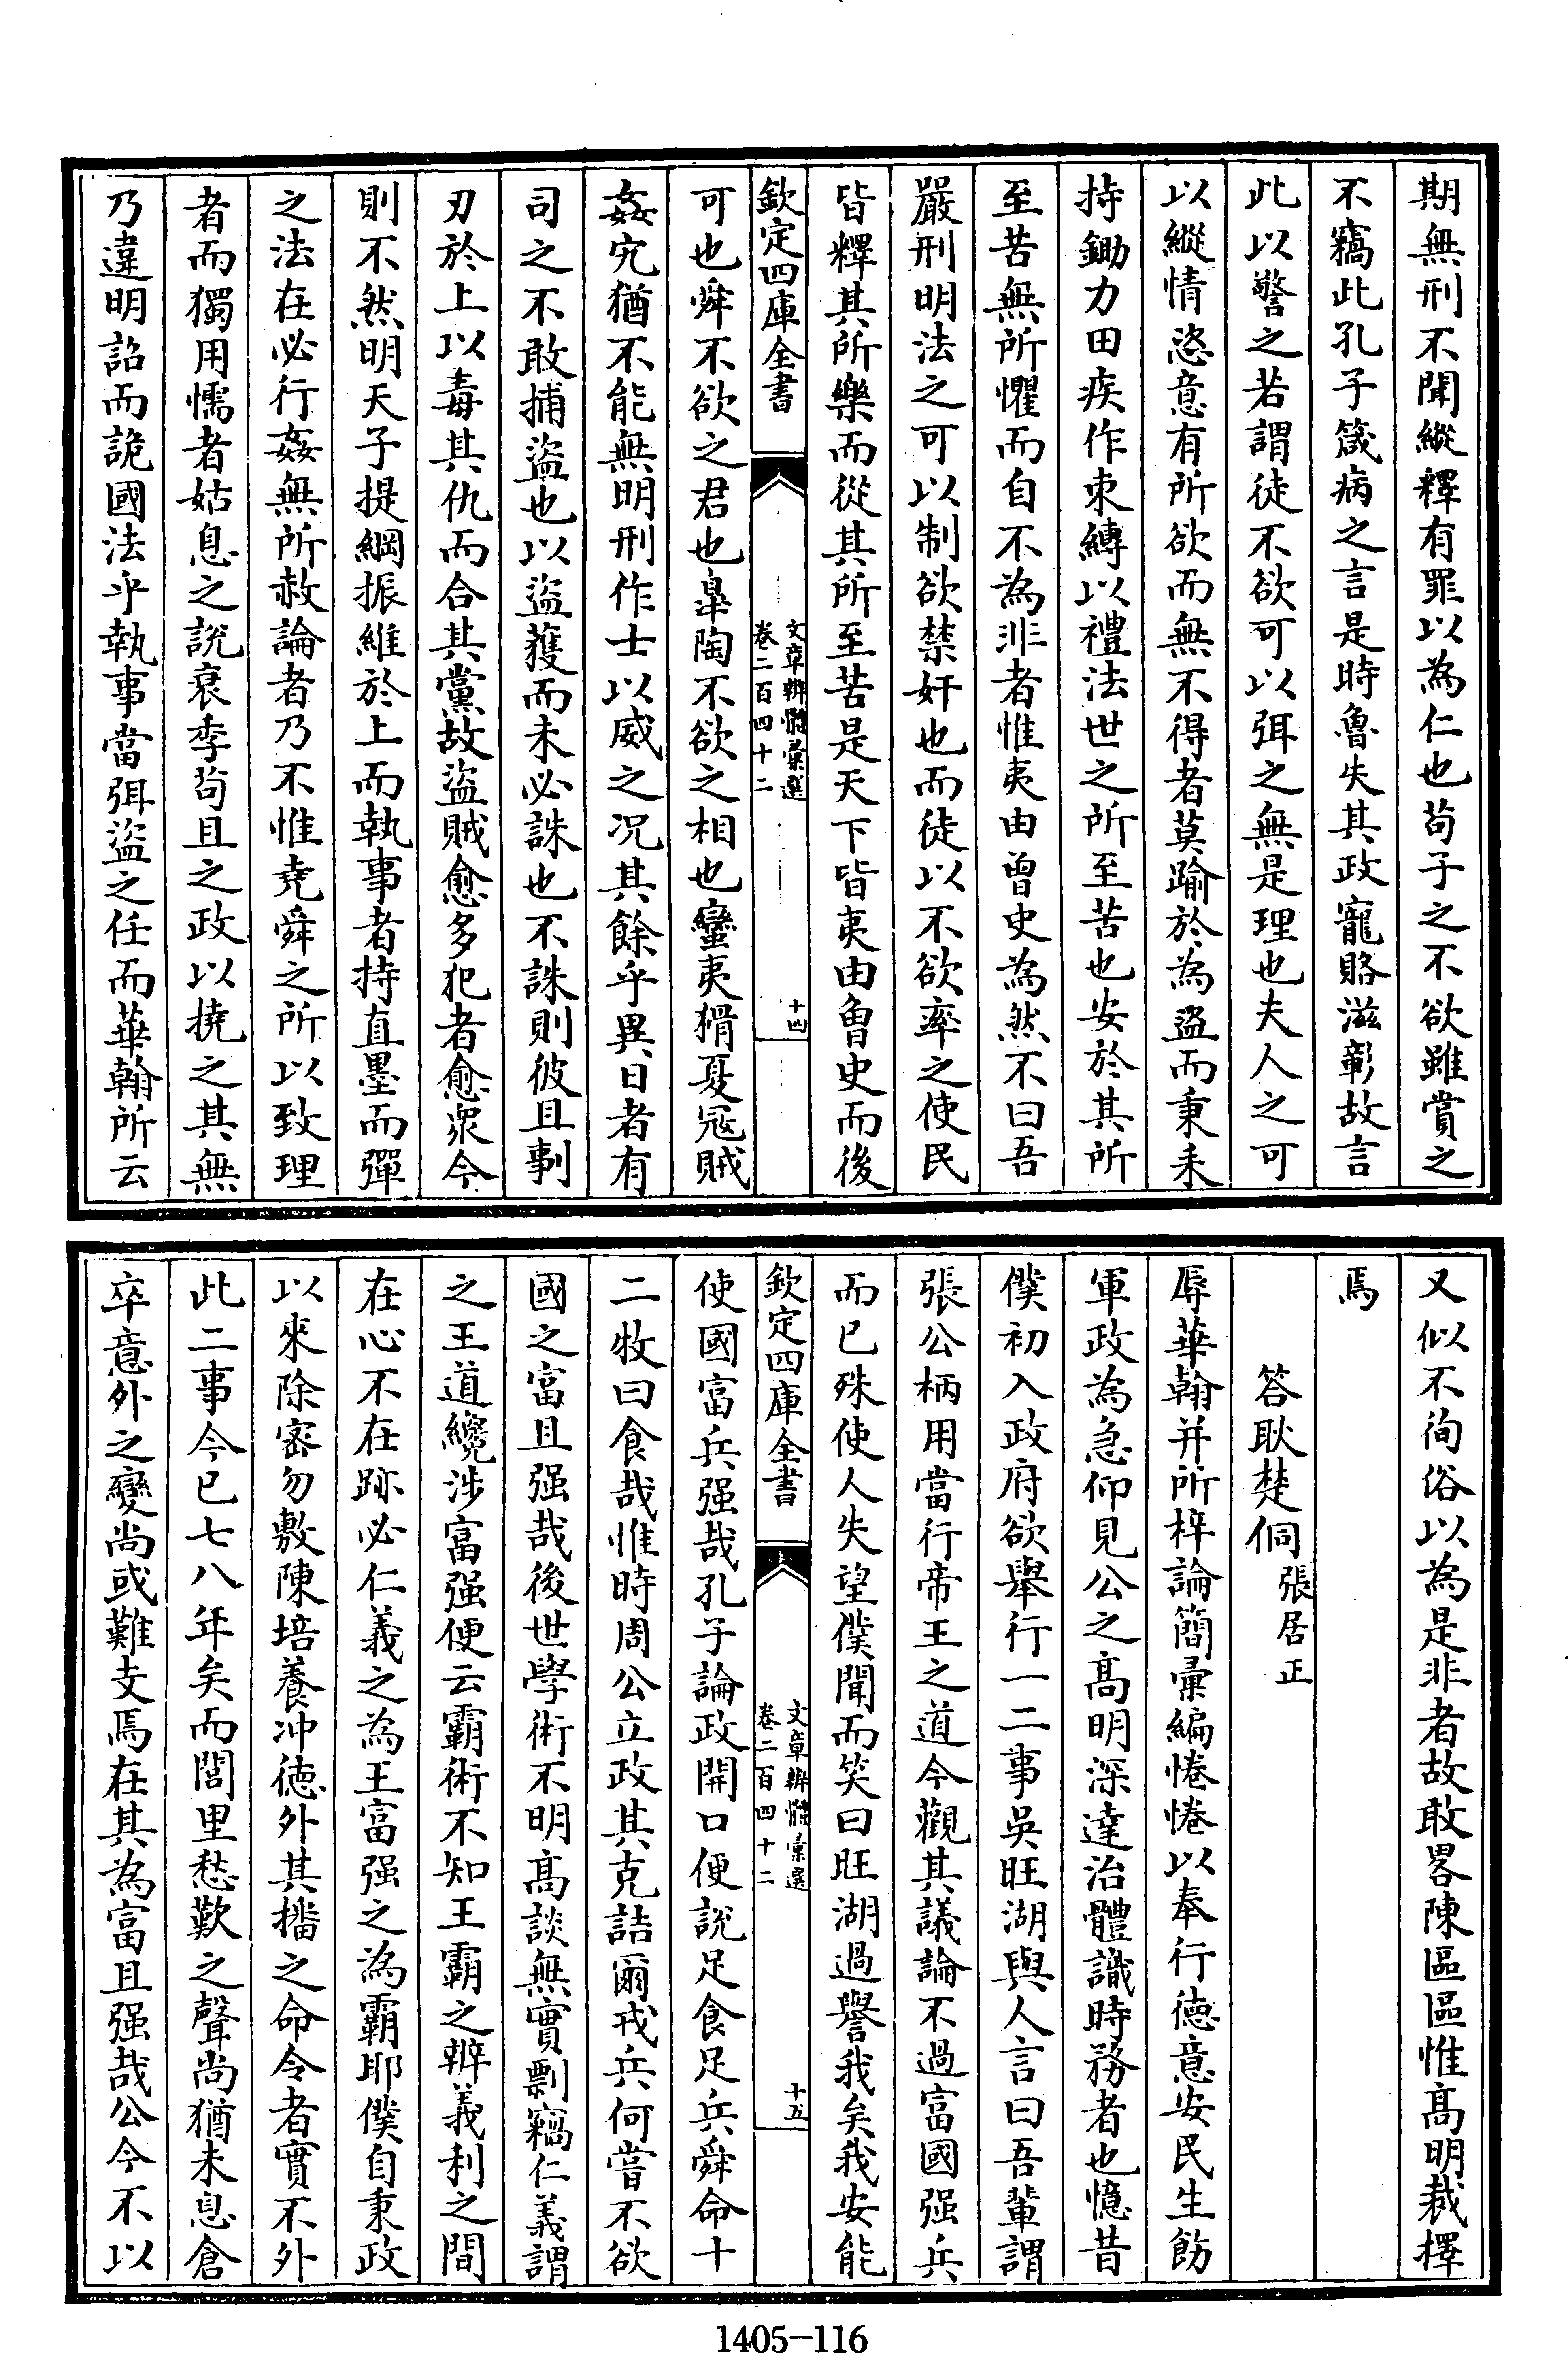 期無刑不聞縱釋有罪以為仁也茍子之不欲雖賞之
不竊此孔子箴病之言是時魯失其政寵賂滋彰故言
此以警之若謂徒不欲可以弭之無是理也夫人之可
以縱情恣意有所欲而無不得者莫踰於為盜而秉耒
持鋤力田疾作束縛以禮法世之所至苦也安於其所
至苦無所懼而自不為非者惟夷由曾史為然不曰吾
嚴刑明法之可以制欲禁奸也而徒以不欲率之使民
皆釋其所樂而從其所至苦是天下皆夷由魯史而後
欽定四庫全書
文章辨體彙選
卷二百四十二
十四
可也舜不欲之君也臯陶不欲之相也蠻夷猾夏寇賊
姦宄猶不能無明刑作士以威之况其餘乎異日者有
司之不敢捕盜也以盜獲而未必誅也不誅則彼且剚
刃於上以毒其仇而合其黨故盜賊愈多犯者愈衆今
則不然明天子提綱振維於上而執事者持直墨而彈
之法在必行姦無所赦論者乃不惟堯舜之所以致理
者而獨用懦者姑息之說衰季茍且之政以撓之其無
乃違明詔而詭國法乎執事當弭盜之任而華翰所云
又似不徇俗以為是非者故敢畧陳區區惟髙明裁擇
焉
答耿楚侗
張居正
辱華翰并所梓論簡彙編惓惓以奉行徳意安民生飭
軍政為急仰見公之髙明深達治體識時務者也憶昔
僕初入政府欲舉行一二事吳旺湖與人言曰吾輩謂
張公柄用當行帝王之道今觀其議論不過富國强兵
而已殊使人失望僕聞而笑曰旺湖過譽我矣我安能
欽定四庫全書
文章辨體彙選
卷二百四十二
十五
使國富兵强哉孔子論政開口便說足食足兵舜命十
二牧曰食哉惟時周公立政其克詰爾戎兵何嘗不欲
國之富且强哉後世學術不明髙談無實剽竊仁義謂
之王道纔涉富强便云霸術不知王霸之辨義利之間
在心不在跡必仁義之為王富强之為霸耶僕自秉政
以來除密勿敷陳培養冲徳外其播之命令者實不外
此二事今已七八年矣而閭里愁歎之聲尚猶未息倉
卒意外之變尚或難支焉在其為富且强哉公今不以
1405-116